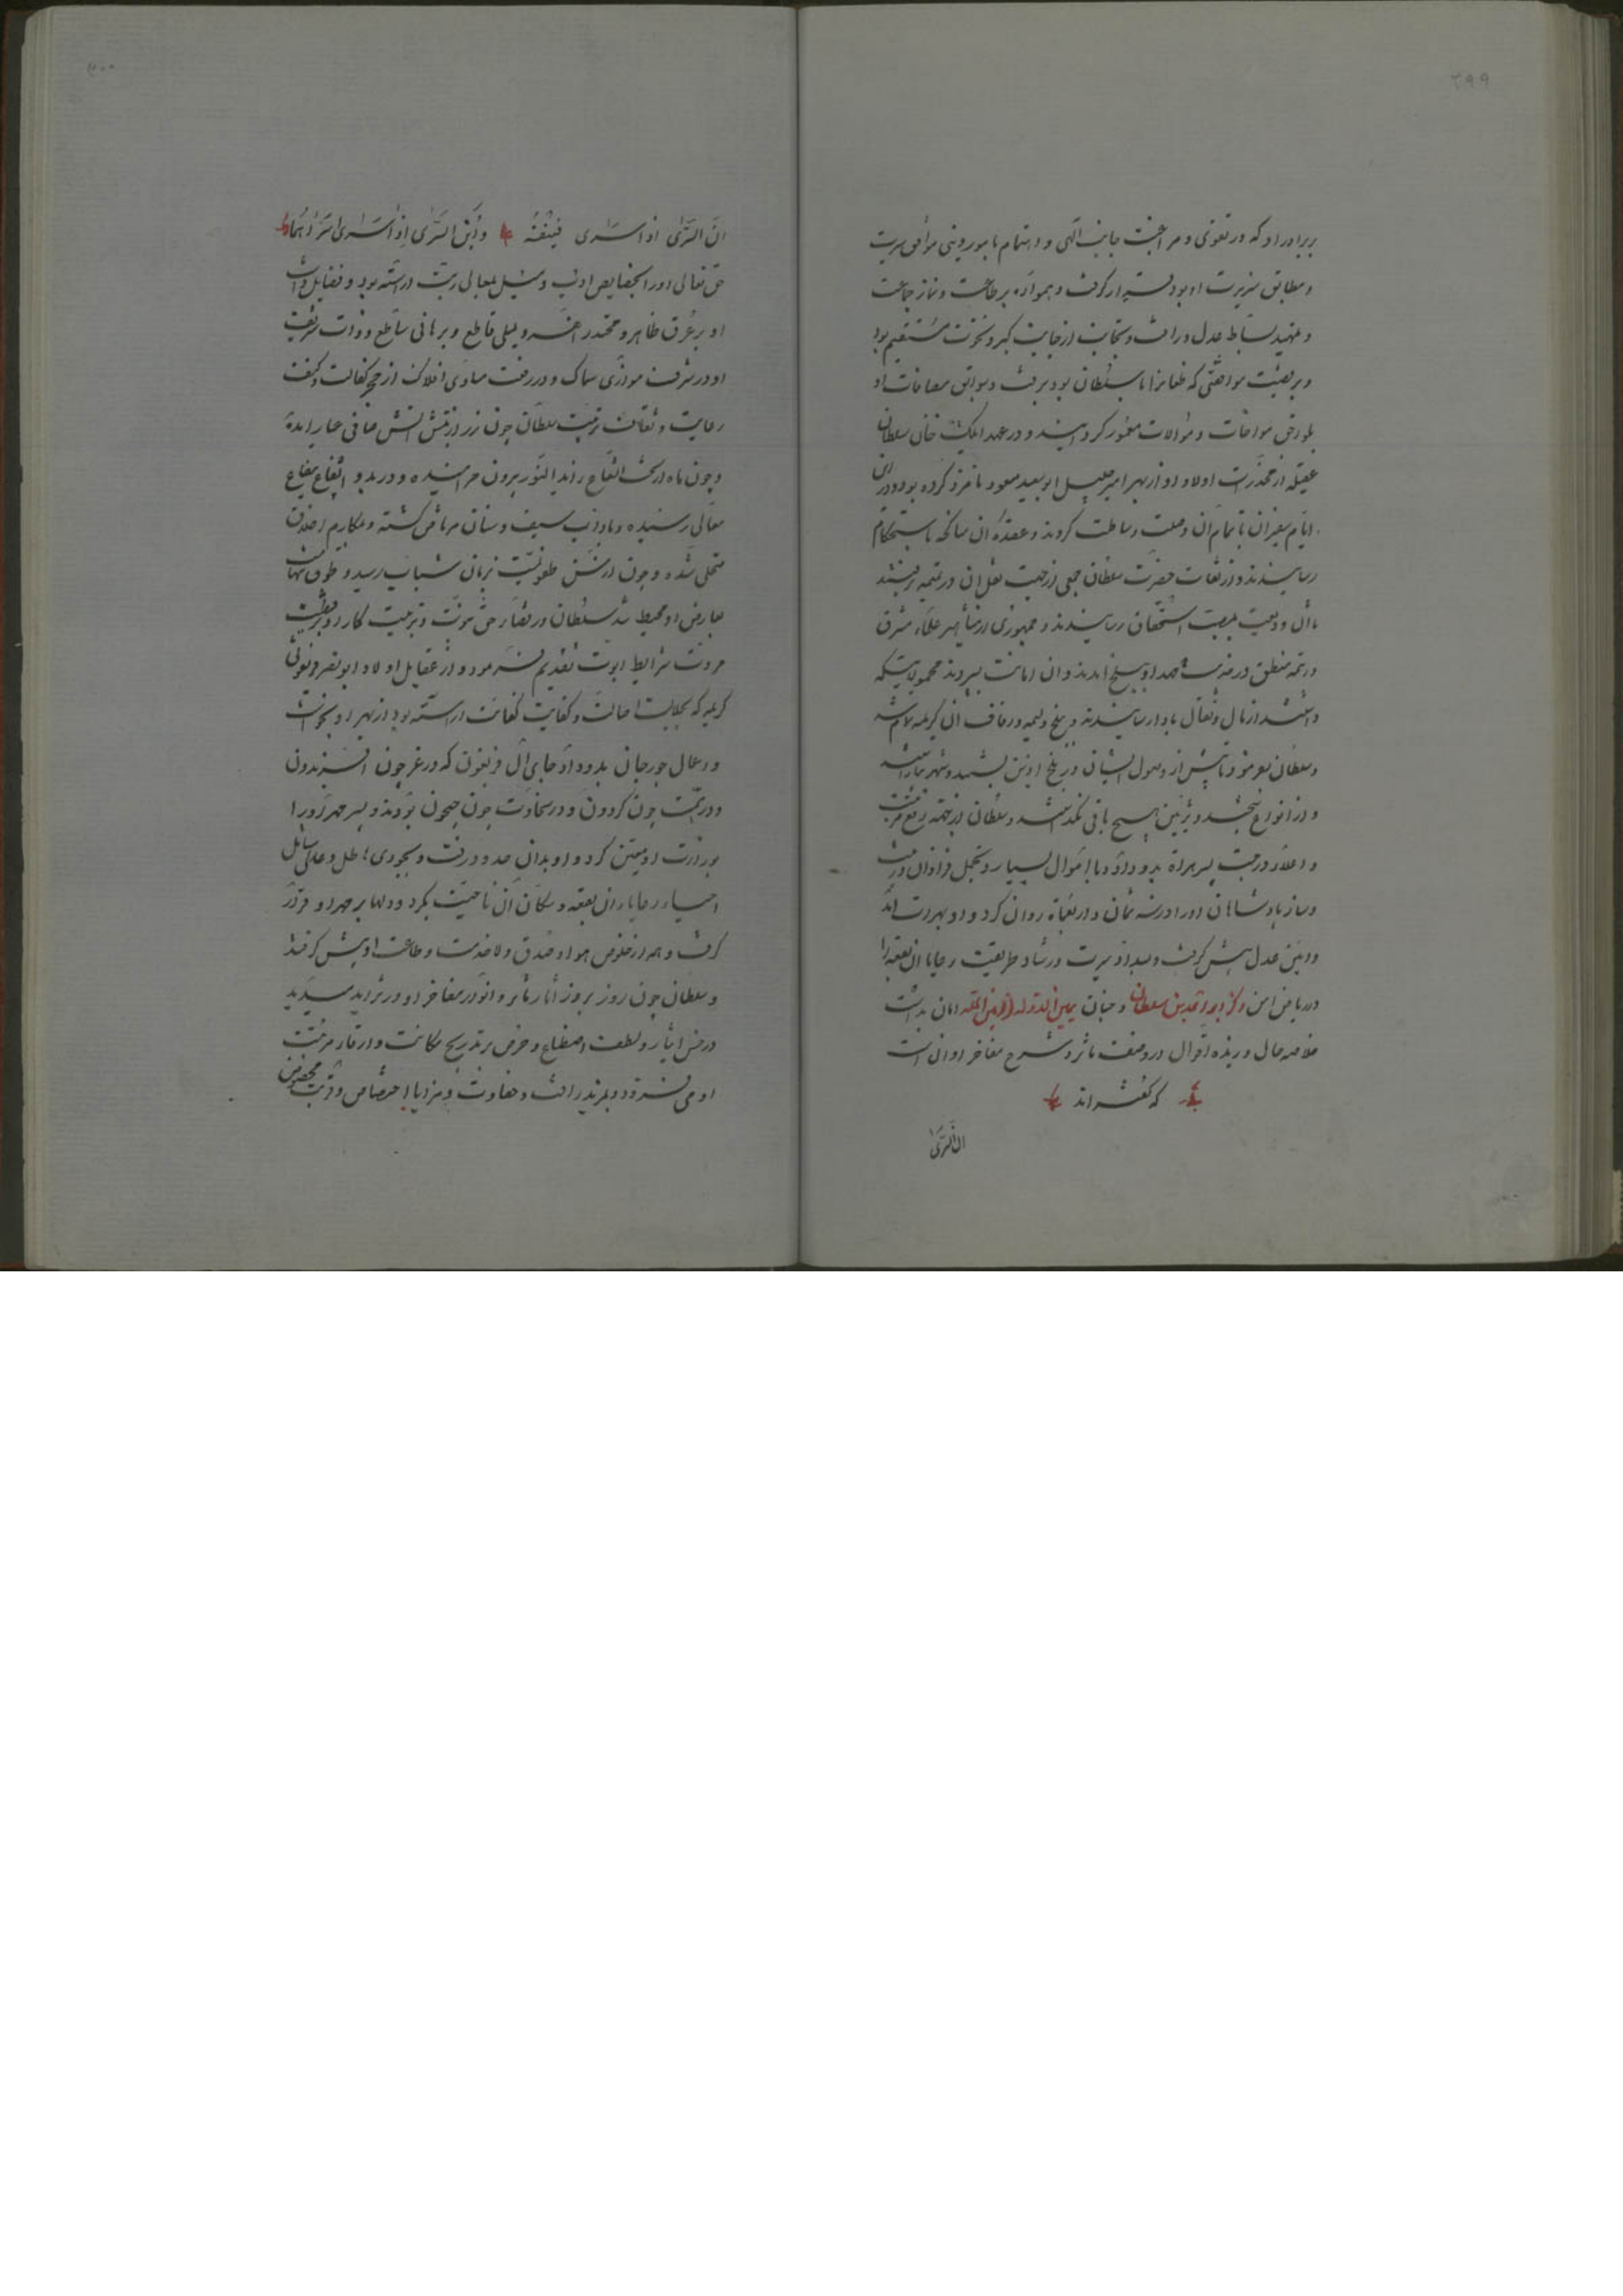 ۲۹۹
ببرادر او که در تقوی و مراقبت جانب الهی و اهتمام بامور دینی موافق سیرت
و مطابق سریرت او بود قرار گرفت و همواره بر طاعت و نماز جماعت
و تمهید بساط عدل و رافت و تجانب از جانب کبر و نخوت مستقیم بود
و بر قضیت موافقتی که طغانرا با سلطان بود برفت و سوابق مصافات او
بلواحق مواخات و موالات معمور کردانید و در عهد ایلک خان سلطان
عقیله از مخدرات اولاد او از بهر امیر جلیل ابو سعید مسعود نامزد کرده بود و در ان
ایام سفیران باتمام ان وصلت وساطت کردند و عقده ان مناکحه باستحکام
رسانیدند و از ثقات حضرت سلطان جمعی از جهت نقل ان در یتیمه برفتند
تا ان ودیعت بمصب استحقاق رسانیدند و جمهوری از مشاهیر علماء مشرق
و ائمه منطق در خدمت مهد او ببلخ امدند و ان امانت بسپردند محمولاتیکه
داشتند از مال و نعال بادا رسانیدند و ببلخ ولیمه و زفاف ان کریمه
و سلطان بفرمود تا پیش از وصول ایشان در بلخ اذین بستند و شهر بیاراستند
و از انواع تجمل و تزیین هیچ باقی نگذاشتند و سلطان از جهت رفع مرتبت
و اعلاء درجت پسر هراة بدو داد و با اموال بسیار و تجمل فراوان و زینت
و ساز پادشاهان او را در سنه ثمان و اربعمایه روان کرد و او بهرات امد
و ائین عدل پیش گرفت و بسداد سیرت و رشاد طریقت رعایا ان بقعه را
در ریاض امن ذکر ابو احمد بن سلطان و جنان یمین الدوله و امین المله امان بداشت
خلاصه حال و زبده اقوال در وصف ماثر و شرح مفاخر او ان است
که گفته اند
ان السری
۳۰۰
ان السری اذا سری فبنفسه وابن السری اذا سری اسراهما
حق تعالی او را بخصایص ادب و نیل بمعالی رتبت اراسته بود و فضایل ذات
او بر عرق طاهر و محتد زاهر دلیلی قاطع و برهانی ساطع و ذات شریف
او در شرف موازی سماک و در رفعت مساوی افلاک از حجر کفالت و کنف
رعایت و ثقاف تربیت سلطان چون زر از تبش اتش صافی عیار امده
و چون ماه از تحت الشعاع زاید النور بیرون خرامیده و در بدو ایفاع بیفاع
معالی رسیده و باداب سیف و سنان مرتاض گشته و بمکارم اخلاق
متحلی شده و چون از سن طفولیت بزمان شباب رسید و طوق شهامت
بعارض او محیط شد سلطان در قضاء حق بنوت و تربیت کار او بر قضیت
مروت شرایط ابوت تقدیم فرمود و از عقایل اولاد ابو نصر فریغونی
کریمه که بجلالت اصالت و کفایت کفائت اراسته بود از بهر او بخواست
و اعمال جوزجان بدو داد جای ال فریغون که در عز چون افریدون
و در همت چون گردون و در سخاوت چون جیحون بودند و پسر مهر زاد را
بوزارت او معین کرد و او بدان حدود رفت و بجودی هاطل و عدلی شامل
احیاء رعایاء ان بقعه و سکان ان ناحیت بکرد و دلها بر مهر او قرار
گرفت و همه از خلوص هوا و صدق ولا خدمت و طاعت او پیش گرفتند
و سلطان چون روز بروز اثار ماثر و انوار مفاخر او در تزاید میدید
در حسن ایثار و لطف اصطناع و حرص بر تدریج مکانت و ارتقاء مرتبت
او می افزود و بمزید رافت و حفاوت و مزایا اختصاص و قربت مخصوص